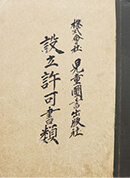 株式会社
児童圖書出版社
設立許可書類